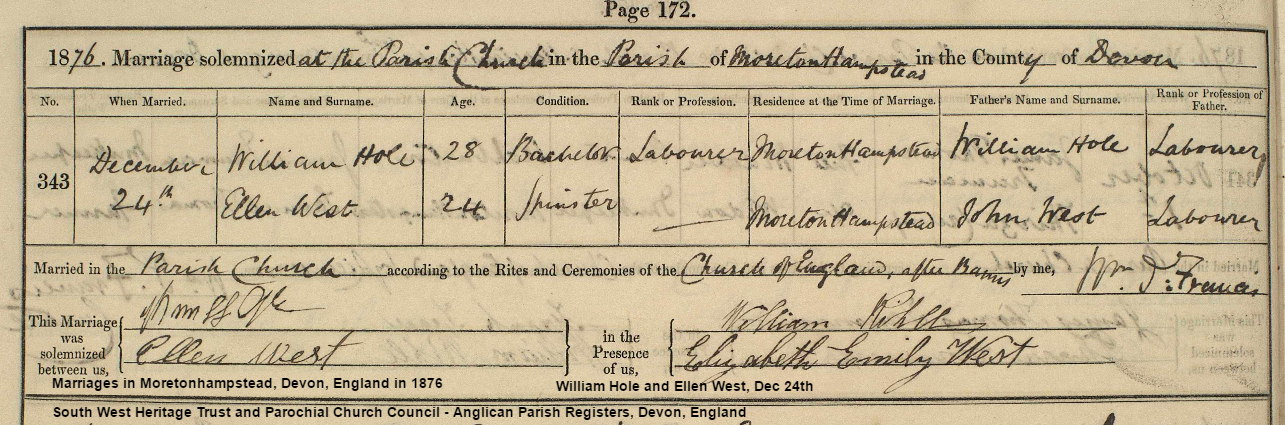 Page 172.
1876. Marriage solemnized at the Parish Church in the Parish of MoretonHampstead in the County of Devon
No. When Married. Name and Surname. Age. Condition. Rank or Profession. Residence at the Time of Marriage. Father's Name and Surname. Rank or Profession of Father.
343 December 24th William Hole 28 Bachelor Labourer MoretonHampstead William Hole Labourer
Ellen West 24 Spinster — MoretonHampstead John West Labourer
Married in the Parish Church according to the Rites and Ceremonies of the Church of England, after Banns by me, Wm. J: Francis
This Marriage was solemnized between us,
Ellen West
in the Presence of us,
William
Elizabeth Emily West
Marriages in Moretonhampstead, Devon, England in 1876 William Hole and Ellen West, Dec 24th
South West Heritage Trust and Parochial Church Council - Anglican Parish Registers, Devon, England